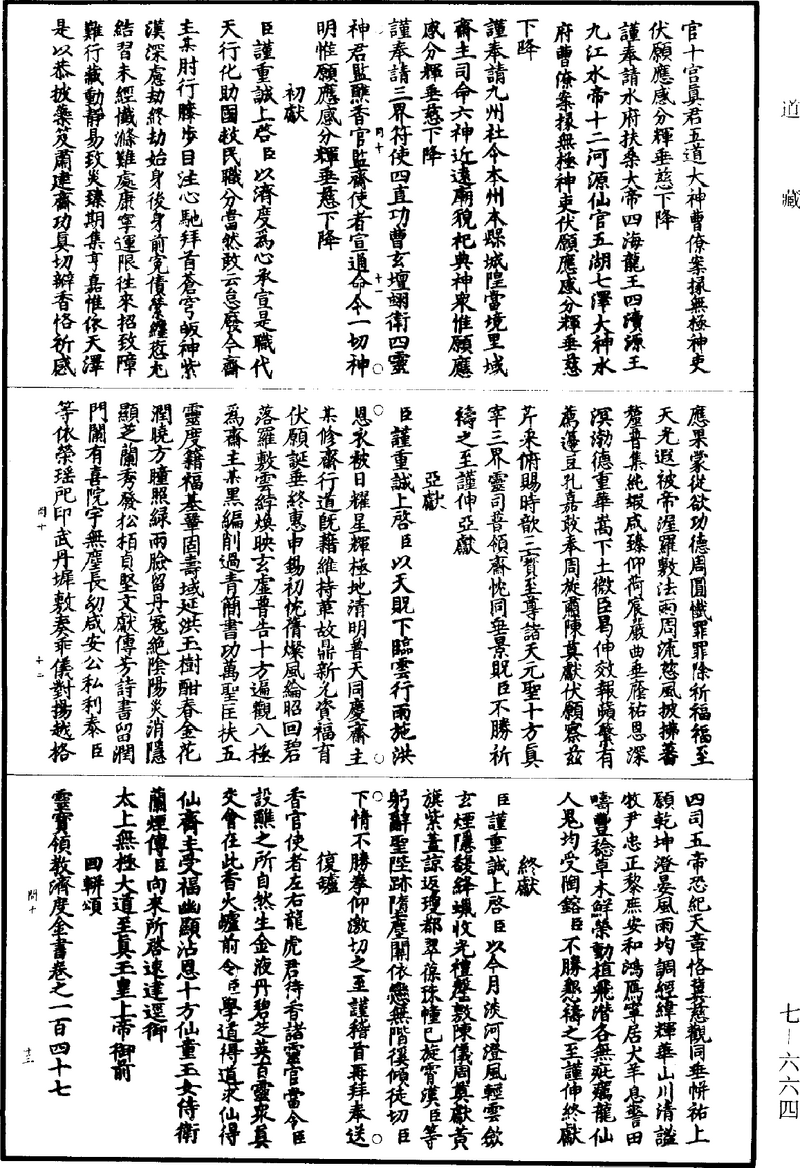 道藏
七—六六四
官十宮眞君五道大神曹僚案掾無極神吏
伏願應感分輝垂慈下降
謹奉請水府扶桑大帝四海龍王四瀆源王
九江水帝十二河源仙官五湖七澤大神水
府曹僚案掾無極神吏伏願應感分輝垂慈
下降
謹奉請九州社令本州本縣城隍當境里域
齋主司命六神近遠廟貌祀典神衆惟願應
感分輝垂慈下降
謹奉請三界符使四直功曹玄壇翊衛四靈
神君監醮香官監齋使者宣通命令一切神
明惟願應感分輝垂慈下降
初獻
臣謹重誠上啓臣以濟度爲心承宣是職代
天行化助國救民職分當然敢云怠廢今齋
主某肘行膝步目注心馳拜首蒼穹皈神紫
漠深應劫終劫始身後身前寃債縈纏愆尤
結習未經懺滌難處康寧運限往來招致障
難行藏動靜易致災臻期集亨嘉惟依天澤
是以恭披蘂笈肅建齋功眞切辦香恪祈感
應果蒙從欲功德周圓懺罪罪除祈福福至
天光遐被帝渥羅敷法雨周流慈風披拂蕃
釐普集純嘏咸臻仰荷宸嚴曲垂廕祐恩深
溟渤德重華嵩下土微臣曷伸效報蘋蘩有
薦籩豆孔嘉敢奉周旋肅陳奠獻伏願察兹
芹釆俯賜時歆三寶至尊諸天元聖十方眞
宰三界靈司普領齋忱同垂景貺臣不勝祈
禱之至謹伸亞獻
亞獻
臣謹重誠上啓臣以天貺下臨雲行雨施洪
恩衣被日耀星輝極地清明普天同慶齋主
某修齋行道旣藉維持革故鼎新尤資福育
伏願誕垂終惠申錫初忱膋燦風綸昭回碧
落羅敷雲綍煥映玄虛普告十方遍觀八極
爲齋主某黑編削過青簡書功萬聖匡扶五
靈度籍福基鞏固壽域延洪玉樹酣春金花
潤曉方瞳照綠兩臉留丹寃絶陰陽災消隱
顯芝蘭秀發松栢貞堅文獻傳芳詩書留潤
門闌有喜院宇無塵長幼咸安公私利泰臣
等依榮瑶戺印武丹墀敷奏乖儀對揚越格
四司五帝忍紀天章恪冀慈觀同垂帡祐上
願乾坤澄晏風雨均調經緯輝華山川清謐
牧尹忠正黎庶安和鴻鴈寧居犬羊息警田
疇豐稔草木鮮榮動植飛潛各無疵癘龍仙
人鬼均受陶鎔臣不勝懇禱之至謹伸終獻
終獻
臣謹重誠上啓臣以今月淡河澄風輕雲斂
玄煙隱馥絳蠟收光禮罄敷陳儀周奠獻黃
旗紫蓋諒返瓊都翠葆珠幢已旋霄漢臣等
躬辭聖陛跡隋塵關依戀無階徯傾徒切臣
下情不勝攀仰激切之至謹稽首再拜奉送
復罏
香官使者左右龍虎君待香諸靈官當令臣
設醮之所自然生金液丹碧芝英百靈衆眞
交會在此香火罏前令臣學道得道求仙得
仙齋主受福幽顯沾恩十方仙童玉女侍衛
蘭煙傳臣向來所啓速達逕御
太上無極大道至眞玉皇上帝御前
回軿頌
靈寶領教濟度金書卷之一百四十七